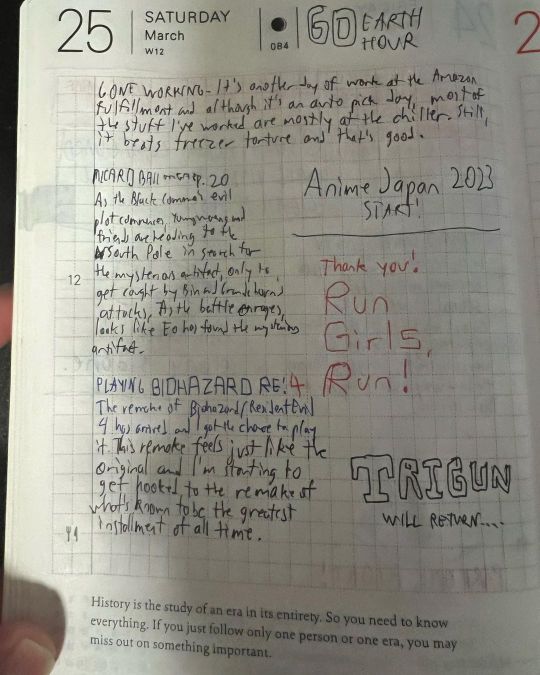 25
SATURDAY
March
W12
084
60 EARTH
HOUR
2
GONE WORKING - It's another day of work at the Amazon
fulfillment and although it's an auto pick day, most of
the stuff I've worked are mostly at the chiller. Still,
it beats freezer torture and that's good.
ep. 20
As the Black Comma's evil
plot commences, and
friends are heading to the
South Pole in search for
the mysterious artifact, only to
get caught by Bin and
attacks. As the battle enrages,
looks like Eo has found the mysterious
artifact.
Anime Japan 2023
START!
12
Thank you!
Run
Girls,
Run!
PLAYING BIOHAZARD RE:4
The remake of Biohazard/Resident Evil
4 has arrived and I got the chance to play
it. This remake feels just like the
original and I'm starting to
get hooked to the remake of
what's known to be the greatest
installment of all time.
TRIGUN
WILL RETURN....
History is the study of an era in its entirety. So you need to know
everything. If you just follow only one person or one era, you may
miss out on something important.